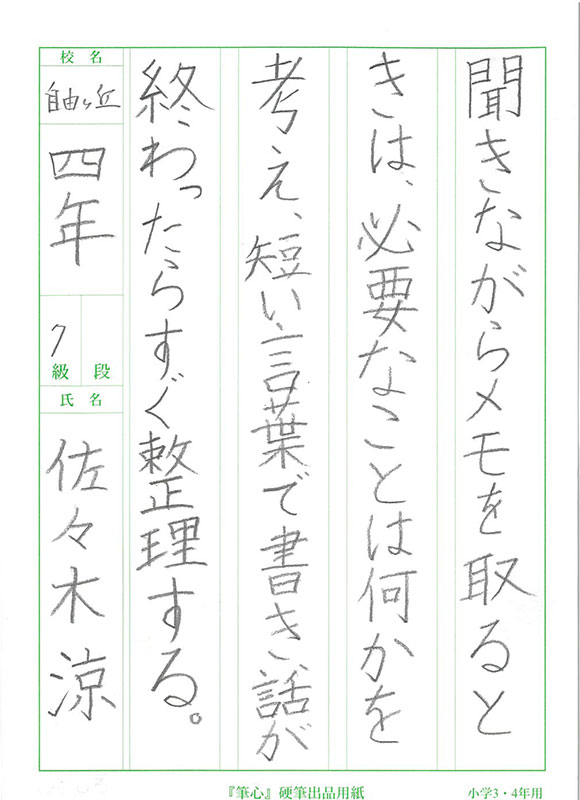 聞きながらメモを取ると
きは、必要なことは何かを
考え、短い言葉で書き、話が
終わったらすぐ整理する。
校名
自由ヶ丘
四年
7
級 段
氏名
佐々木涼
『筆心』硬筆出品用紙
小学3・4年用